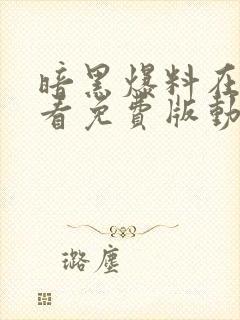 暗黑爆料在
看免費版動
璐塵